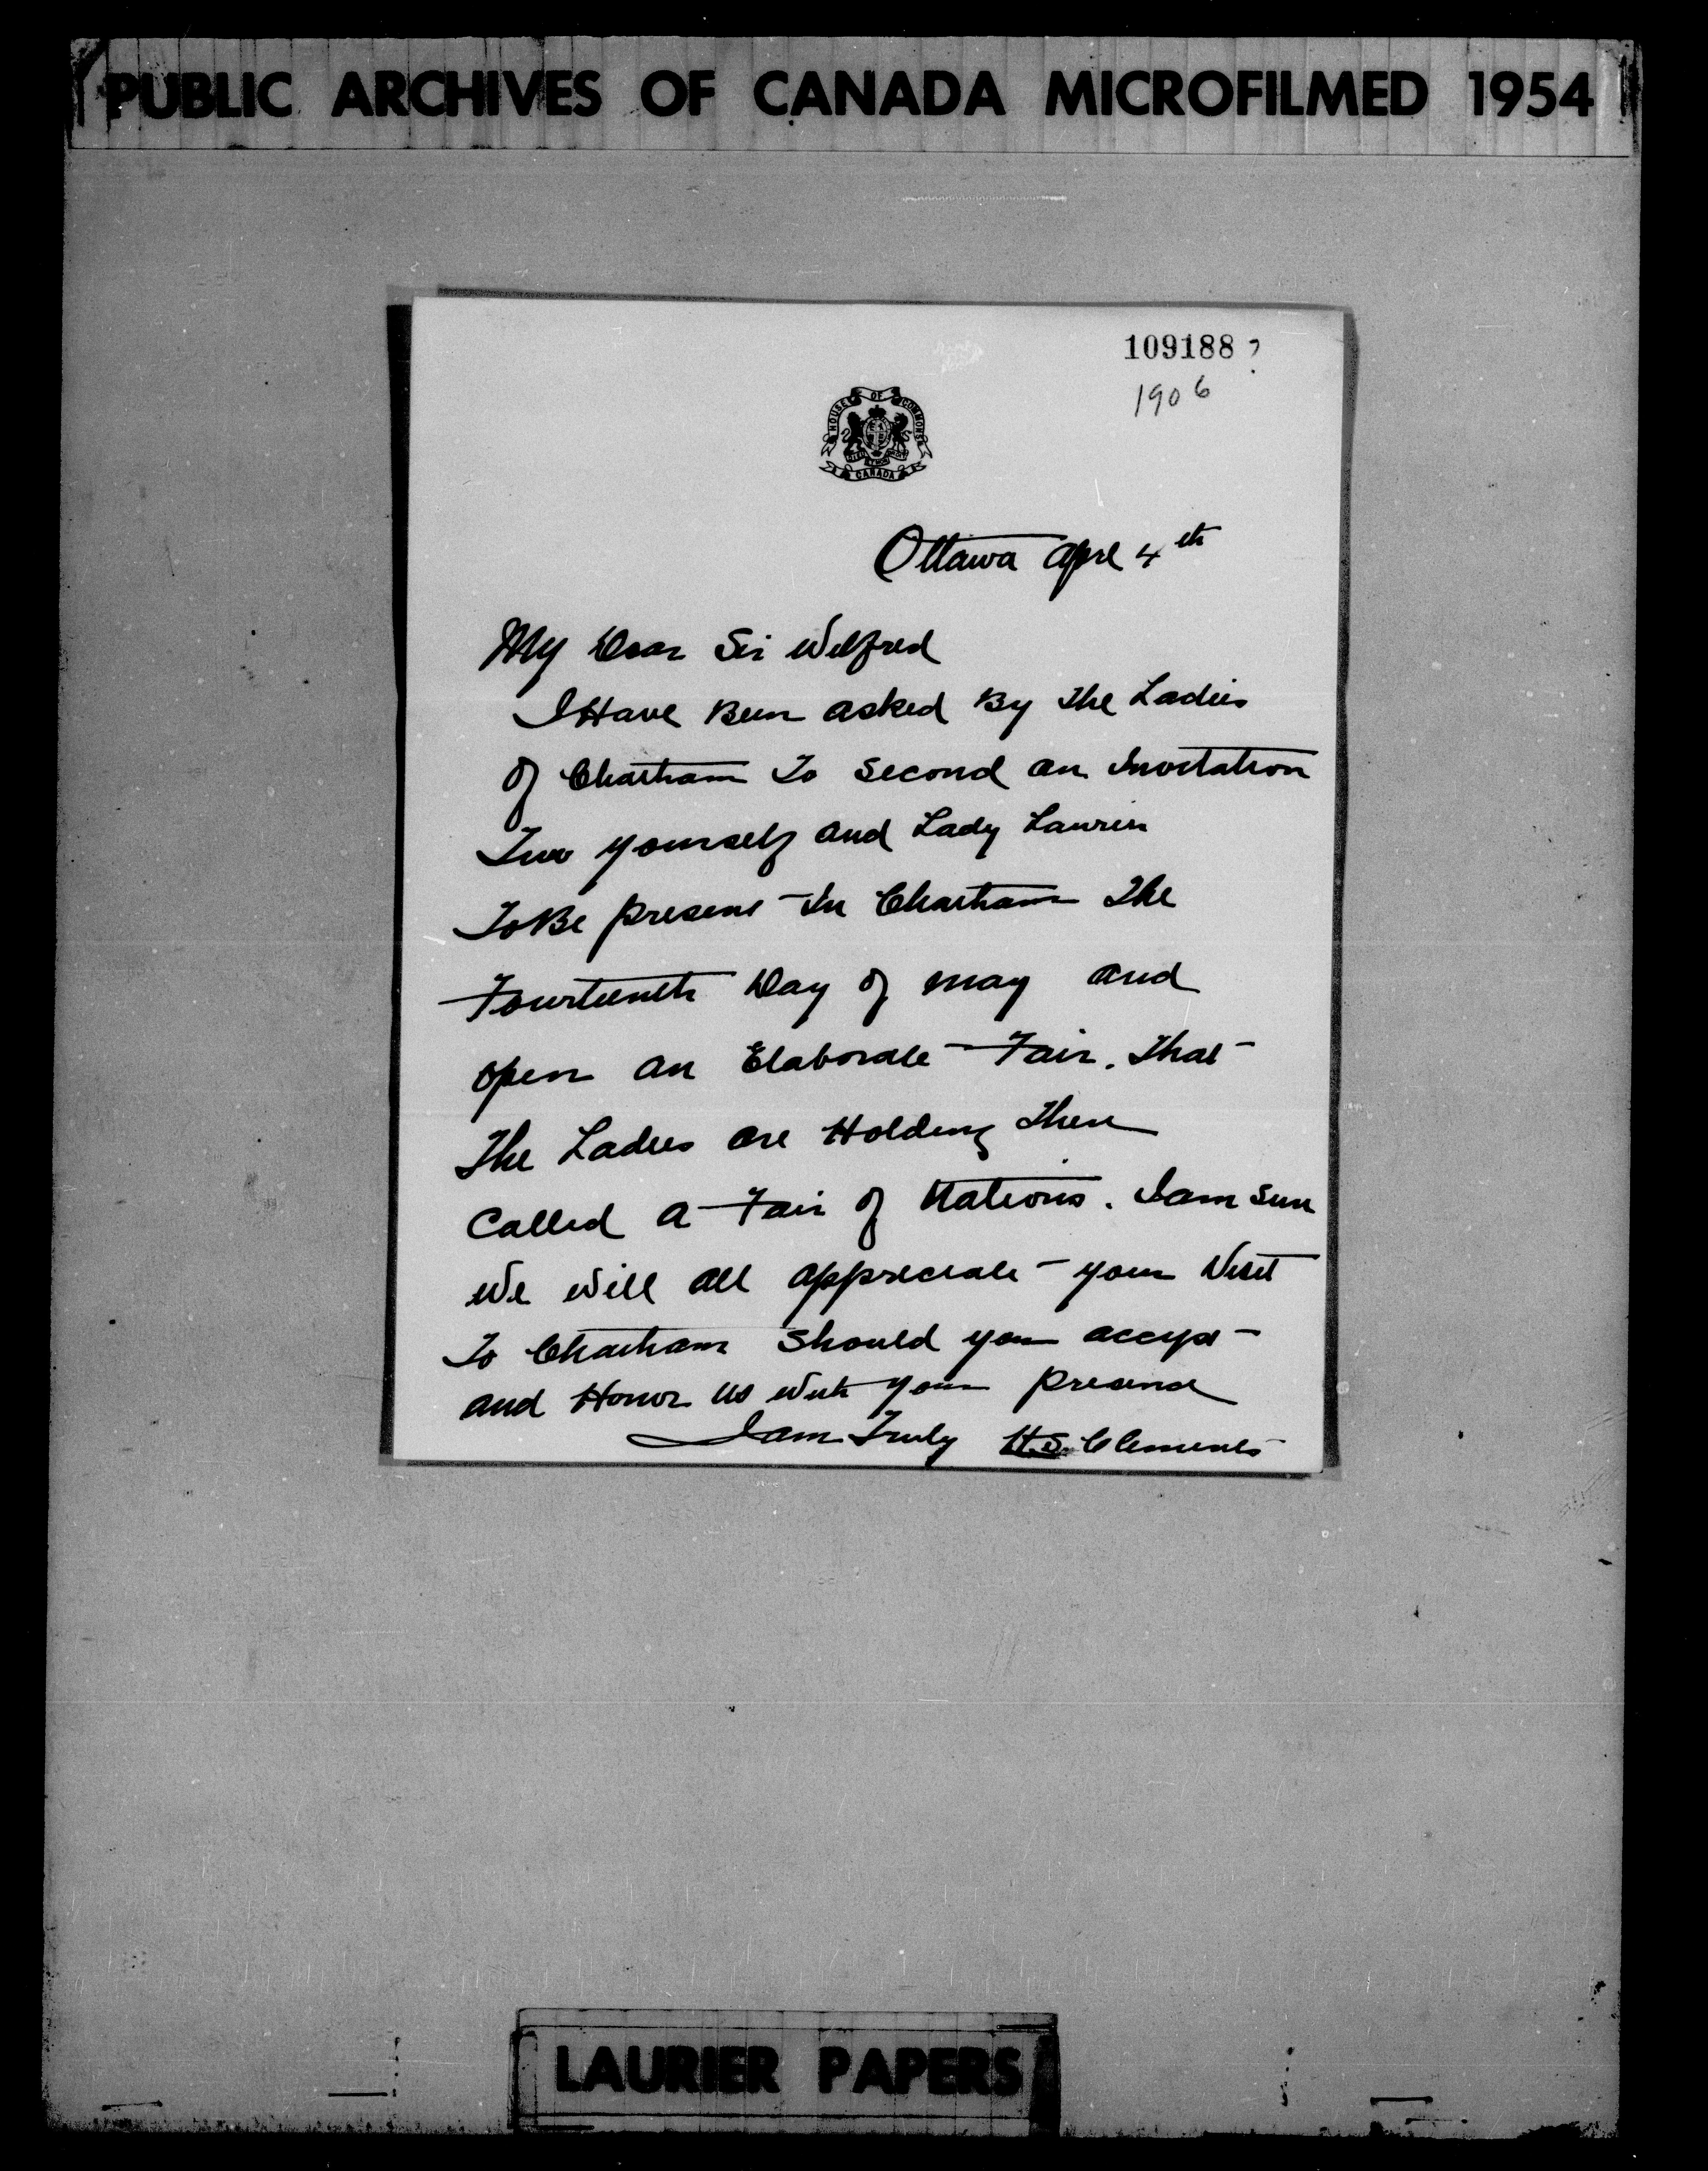 PUBLIC ARCHIVES OF CANADA MICROFILMED 1954
109188 ?
1906
HOUSE OF COMMONS
CANADA
Ottawa Aprl 4th
My Dear Sir Wilfred
I Have Been asked By The Ladies
Of Chatham To Second an Invitation
yourself and Lady Laurier
To Be present In Chatham The
Fourteenth Day of May and
open an Elaborate Fair. That
The Ladies are Holding There
Called a Fair of Nations. I am Sure
We Will all appreciate your Visit
To Chatham Should you accept
and Honor us With your presence
I am Truly H.S. Clements
LAURIER PAPERS